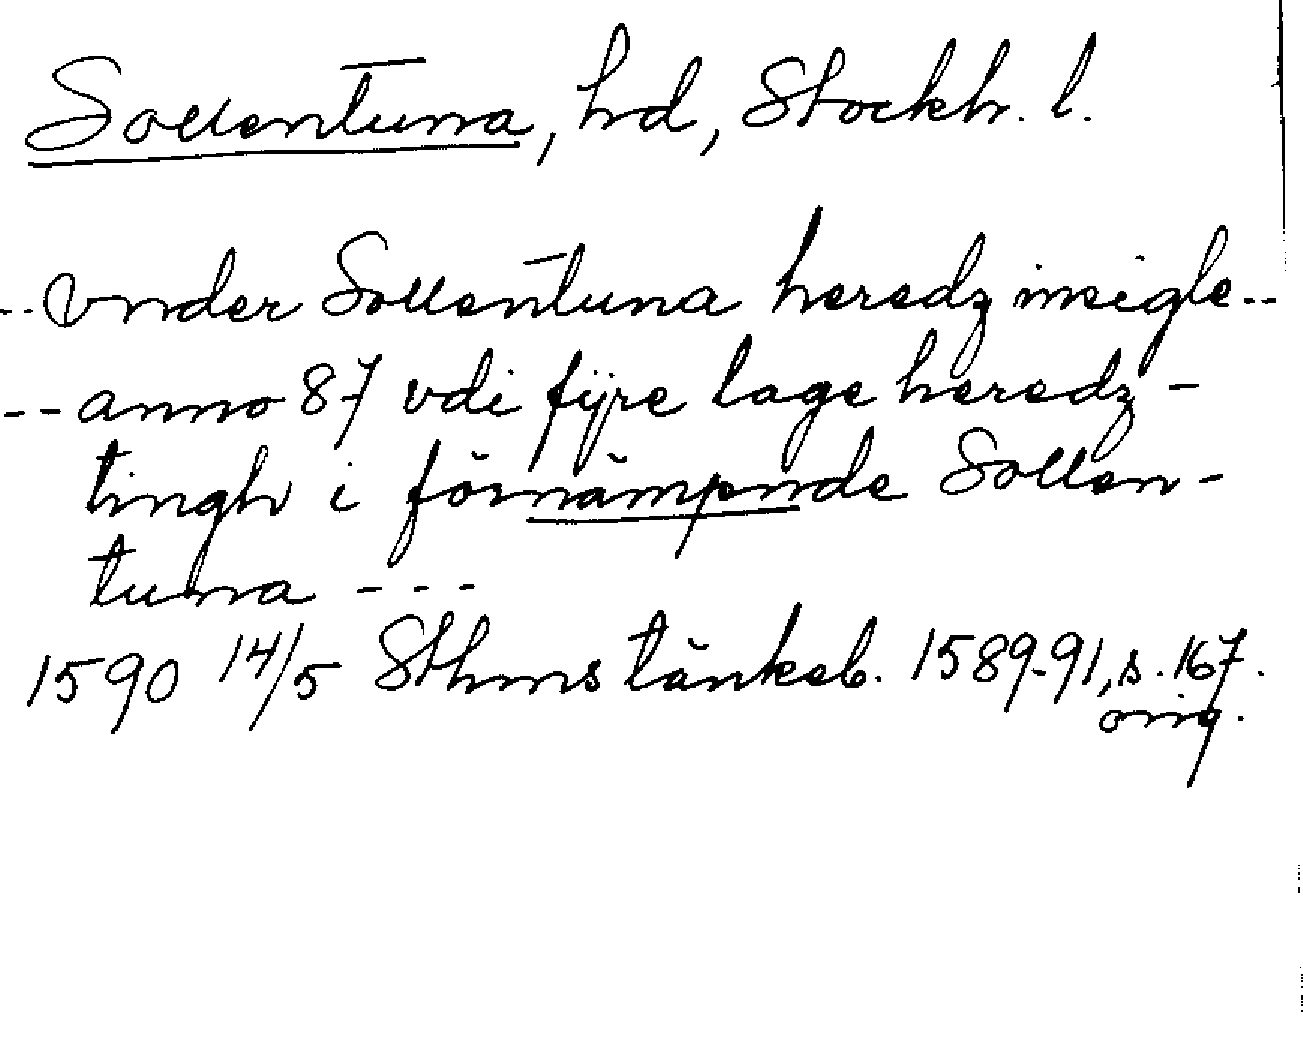 Sollentuna, hd, Stockh. l.
-- Vnder Sollentuna heredz insigle --
-- anno 87 vdi fÿre lage heredz -
tingh i förnämpnde Sollen-
tuna - - -
1590 14/5 Sthms tänkeb. 1589-91, s. 167.
orig.